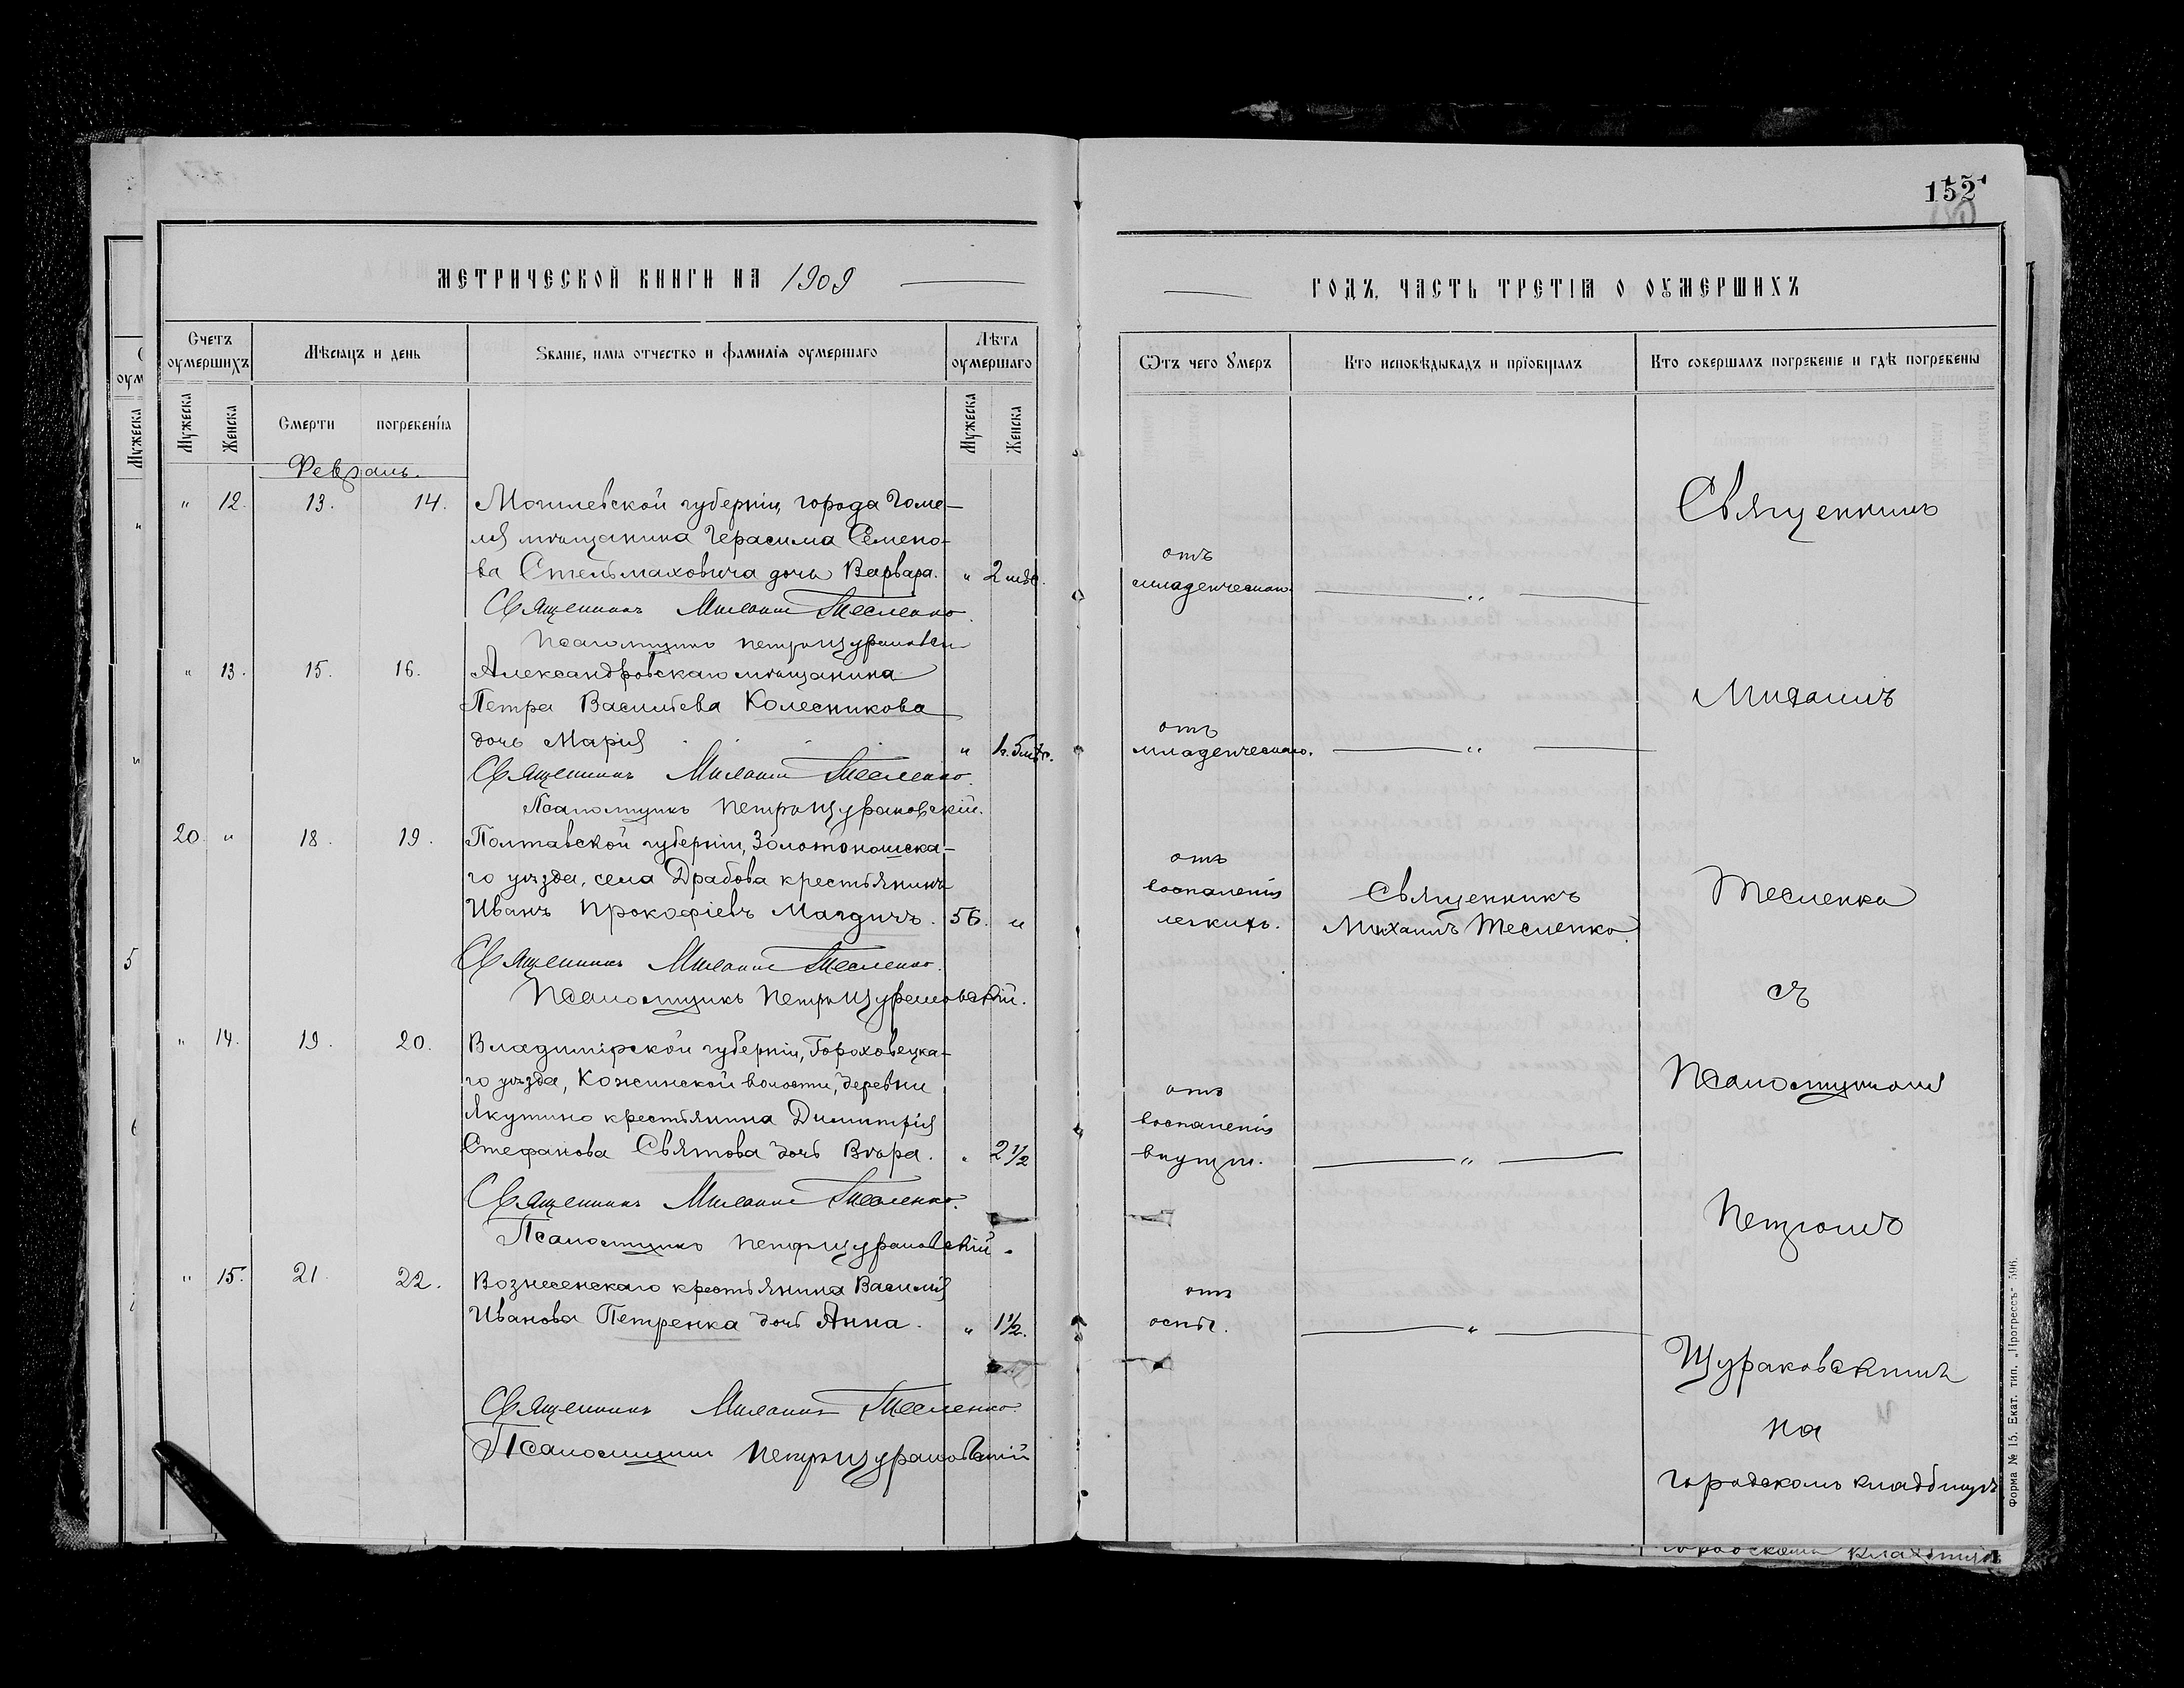 152
МЕТРИЧЕСКОЙ КНИГИ НА 1909
ГОДЪ, ЧАСТЬ ТРЕТІЯ О ОУМЕРШИХЪ
Счетъ оумершихъ
Мѣсяцъ и день
Званіе, имя отчество и фамилія оумершаго
Лѣта оумершаго
Ѿтъ чего Умеръ
Кто исповѣдывалъ и пріобщалъ
Кто совершалъ погребеніе и гдѣ погребены
Мужеска
Женска
Смерти
погребенія
Мужеска
Женска
Февраль.
" 12. 13. 14. Могилевской губерніи, города Гоме-
ля мѣщанина Герасима Семено-
ва Стельмаховича дочь Варвара. " 2 мѣс.
отъ
младенческаго.
Священникъ Михаилъ Тесленко.
Псаломщикъ Петръ Щураковскій
" 13. 15. 16. Александровскаго мѣщанина
Петра Васильева Колесникова
дочь Марія " 1 г. 5 мѣс.
отъ
младенческаго.
Священникъ Михаилъ Тесленко.
Псаломщикъ Петръ Щураковскій.
20. " 18. 19. Полтавской губерніи, Золотоношска-
го уѣзда, села Драбова крестьянинъ
Иванъ Прокофіевъ Магдичъ. 56. "
отъ
воспаленія
легкихъ.
Священникъ
Михаилъ Тесленко.
Священникъ Михаилъ Тесленко.
Псаломщикъ Петръ Щураковскій.
" 14. 19. 20. Владимірской губерніи, Гороховецка-
го уѣзда, Кожинской волости, деревни
Якутино крестьянина Димитрія
Стефанова Святова дочь Вѣра. " 2 1/2
отъ
воспаленія
внутр.
Священникъ Михаилъ Тесленко.
Псаломщикъ Петръ Щураковскій.
" 15. 21. 22. Вознесенскаго крестьянина Василія
Иванова Петренка дочь Анна. " 1 1/2.
отъ
оспы.
Священникъ Михаилъ Тесленко.
Псаломщикъ Петръ Щураковскій
Священникъ
Михаилъ
Тесленко
съ
Псаломщикомъ
Петромъ
Щураковскимъ
на
городскомъ кладбищѣ
Форма № 15. Екат. тип. „Прогрессъ" 596.
городскомъ кладбищѣ